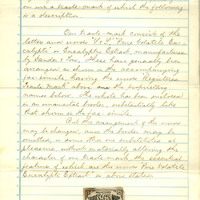 our use a trade-mark of which the following
is a description.
Our trade-mark consists of the
letters and words "Pure Volatile Eu-
calypti" or Eucalypti Extract manufactured
by Sander & Sons. These have generally been
arranged as shown in the accompanying
fac-simile, having the words "Registered
Trade Mark" above and the proprietary
names below. The whole has been enclosed
in an ornamental border, substantially like
that shown in the fac-simile.
But the arrangement of the words
may be changed, and the border may be
omitted, or some other one substituted at
pleasure, without materially altering the
character of our trade-mark, the essential
features of which are the words Pure Volatile
Eucalypti Extract as above stated.